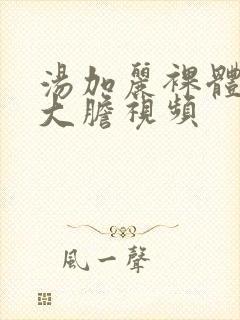 湯加麗裸體
大膽視頻
風一聲